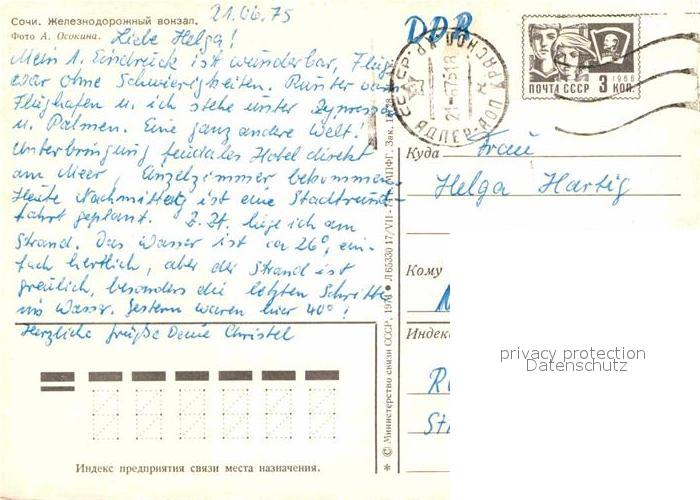 Сочи. Железнодорожный вокзал.
21.06.75
Фото А. Осокина.
Liebe Helga!
Mein 1. Eindruck ist wunderbar, Flug
war ohne Schwierigkeiten. Runter vom
Flughafen u. ich stehe unter Zypressen
u. Palmen. Eine ganz andere Welt!
Unterbringung feudales Hotel direkt
am Meer, Einzelzimmer bekommen.
Heute Nachmittag ist eine Stadtrund-
fahrt geplant. Z. Zt. liege ich am
Strand. Das Wasser ist ca 26°, ein-
fach herrlich, aber der Strand ist
greulich, besonders die letzten Schritte
ins Wasser. Gestern waren hier 40°!
Herzliche Grüße Deine Christel
Индекс предприятия связи места назначения.
© Министерство связи СССР, 1974
DDR
ПОЧТА СССР
1966
3 КОП.
СССР
АДЛЕР
Куда
Frau
Helga Hartig
Кому
Индекс
privacy protection
Datenschutz